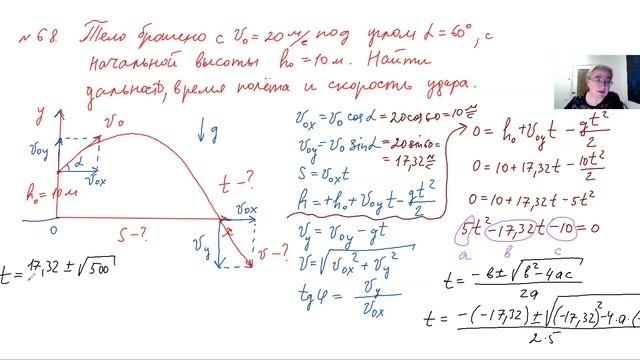 №68. Тело брошено с v₀=20 м/с под углом α=60°, с
начальной высоты h₀=10 м. Найти
дальность, время полёта и скорость удара.
y
v₀
v₀y
α
v₀ₓ
h₀=10 м
0
S-?
↓g
t-?
x
v₀ₓ
v_y
v-?
t = 17,32 ± √500
v₀ₓ = v₀ cos α = 20 cos 60 = 10 м/с
v₀y = v₀ sin α = 20 sin 60 =
= 17,32 м/с
S = v₀ₓ t
h = +h₀ + v₀y t - gt²/2
v_y = v₀y - gt
v = √(v₀ₓ² + v_y²)
tg φ = v_y/v₀ₓ
0 = h₀ + v₀y t - gt²/2
0 = 10 + 17,32t - 10t²/2
0 = 10 + 17,32t - 5t²
5t² - 17,32t - 10 = 0
a b c
t = (-в ± √(в² - 4ac))/2a
t = (-(-17,32) ± √((-17,32)² - 4·a·(-)/2·5